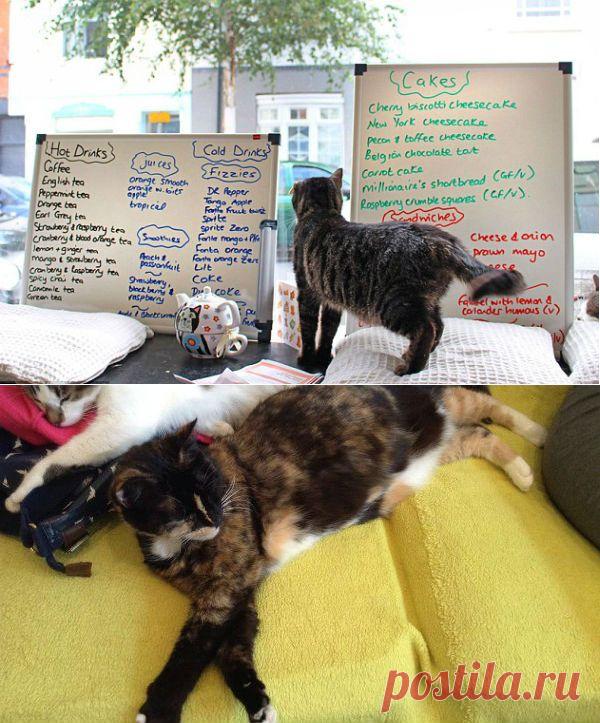 Hot Drinks
Coffee
English tea
Peppermint tea
Orange tea
Earl Grey tea
Strawberry & raspberry tea
Cranberry & blood orange tea
lemon & ginger tea
mango & Strawberry tea
Cranberry & Raspberry tea
Spicy Chai tea
Camomile tea
Green tea
Juices
orange smooth
orange w. bits
apple
tropical
Smoothies
Peach &
passionfruit
Strawberry,
blackberry &
raspberry
Cold Drinks
Fizzies
DR Pepper
Tango Apple
Fanta fruit twist
Sprite
Sprite Zero
Fanta mango +
Fanta orange
Fanta orange Zero
Lilt
Coke
Diet coke
Cakes
Cherry biscotti cheesecake
New York cheesecake
Pecan & toffee cheesecake
Belgian chocolate tart
Carrot cake
Millionaire's shortbread (GF/V)
Raspberry crumble squares (GF/V).
Sandwiches
Cheese & onion
Prawn mayo
Falafel with lemon &
coriander humous (v)
postila.ru